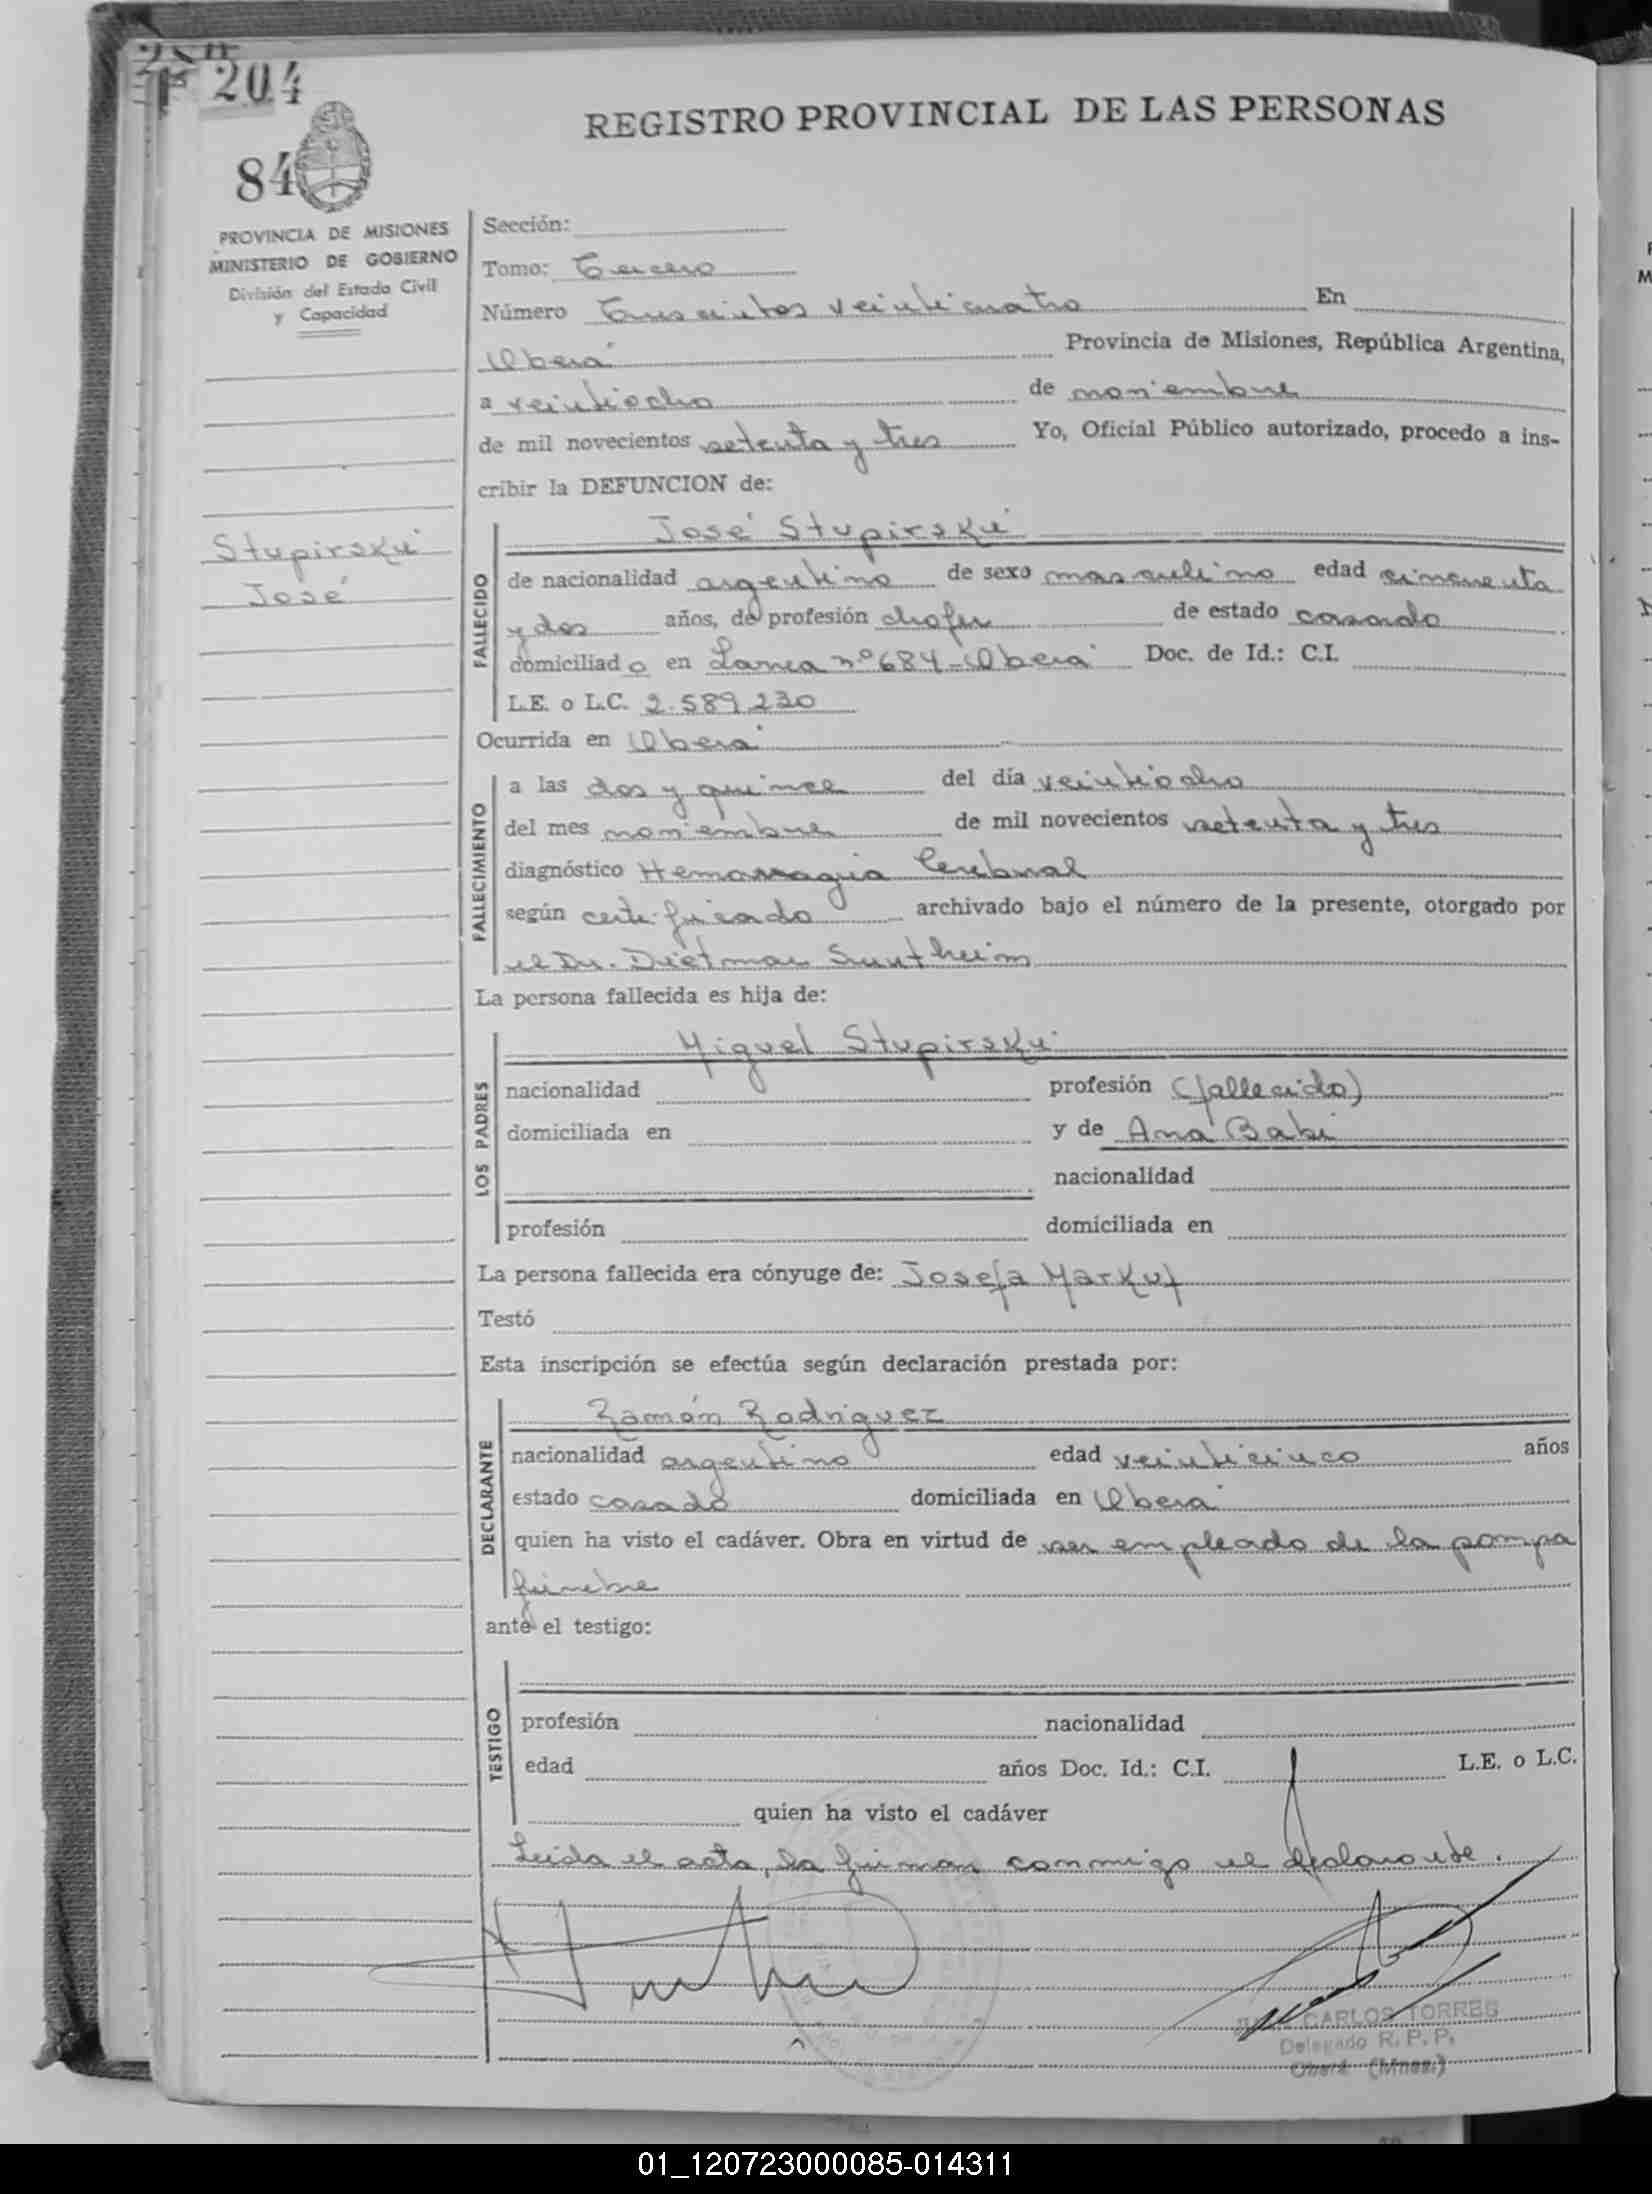 204
84
REGISTRO PROVINCIAL DE LAS PERSONAS
PROVINCIA DE MISIONES
MINISTERIO DE GOBIERNO
División del Estado Civil
y Capacidad
Sección:
Tomo: Tercero
Número Trescientos veinticuatro En
Oberá Provincia de Misiones, República Argentina,
a veintiocho de noviembre
de mil novecientos setenta y tres Yo, Oficial Público autorizado, procedo a ins-
cribir la DEFUNCION de:
Stupirski
José
FALLECIDO
José Stupirski
de nacionalidad argentino de sexo masculino edad cincuenta
y dos años, de profesión chofer de estado casado
domiciliado en nº 684 - Oberá Doc. de Id.: C.I.
L.E. o L.C. 2.589.230
Ocurrida en Oberá
FALLECIMIENTO
a las dos y quince del día veintiocho
del mes noviembre de mil novecientos setenta y tres
diagnóstico Hemorragia Cerebral
según certificado archivado bajo el número de la presente, otorgado por
el Dr. Dietmar
La persona fallecida es hija de:
LOS PADRES
Miguel Stupirski
nacionalidad profesión (fallecido)
domiciliada en y de Ana Babi
nacionalidad
profesión domiciliada en
La persona fallecida era cónyuge de: Josefa Markuf
Testó
Esta inscripción se efectúa según declaración prestada por:
DECLARANTE
Ramón Rodriguez
nacionalidad argentino edad veinticinco años
estado casado domiciliada en Oberá
quien ha visto el cadáver. Obra en virtud de ser empleado de la pompa
fúnebre
ante el testigo:
TESTIGO
profesión nacionalidad
edad años Doc. Id.: C.I. L.E. o L.C.
quien ha visto el cadáver
Leida el acta, la firman conmigo el declarante.
CARLOS TORRES
Delegado R. P. P.
Oberá (Mnes.)
01_120723000085-014311